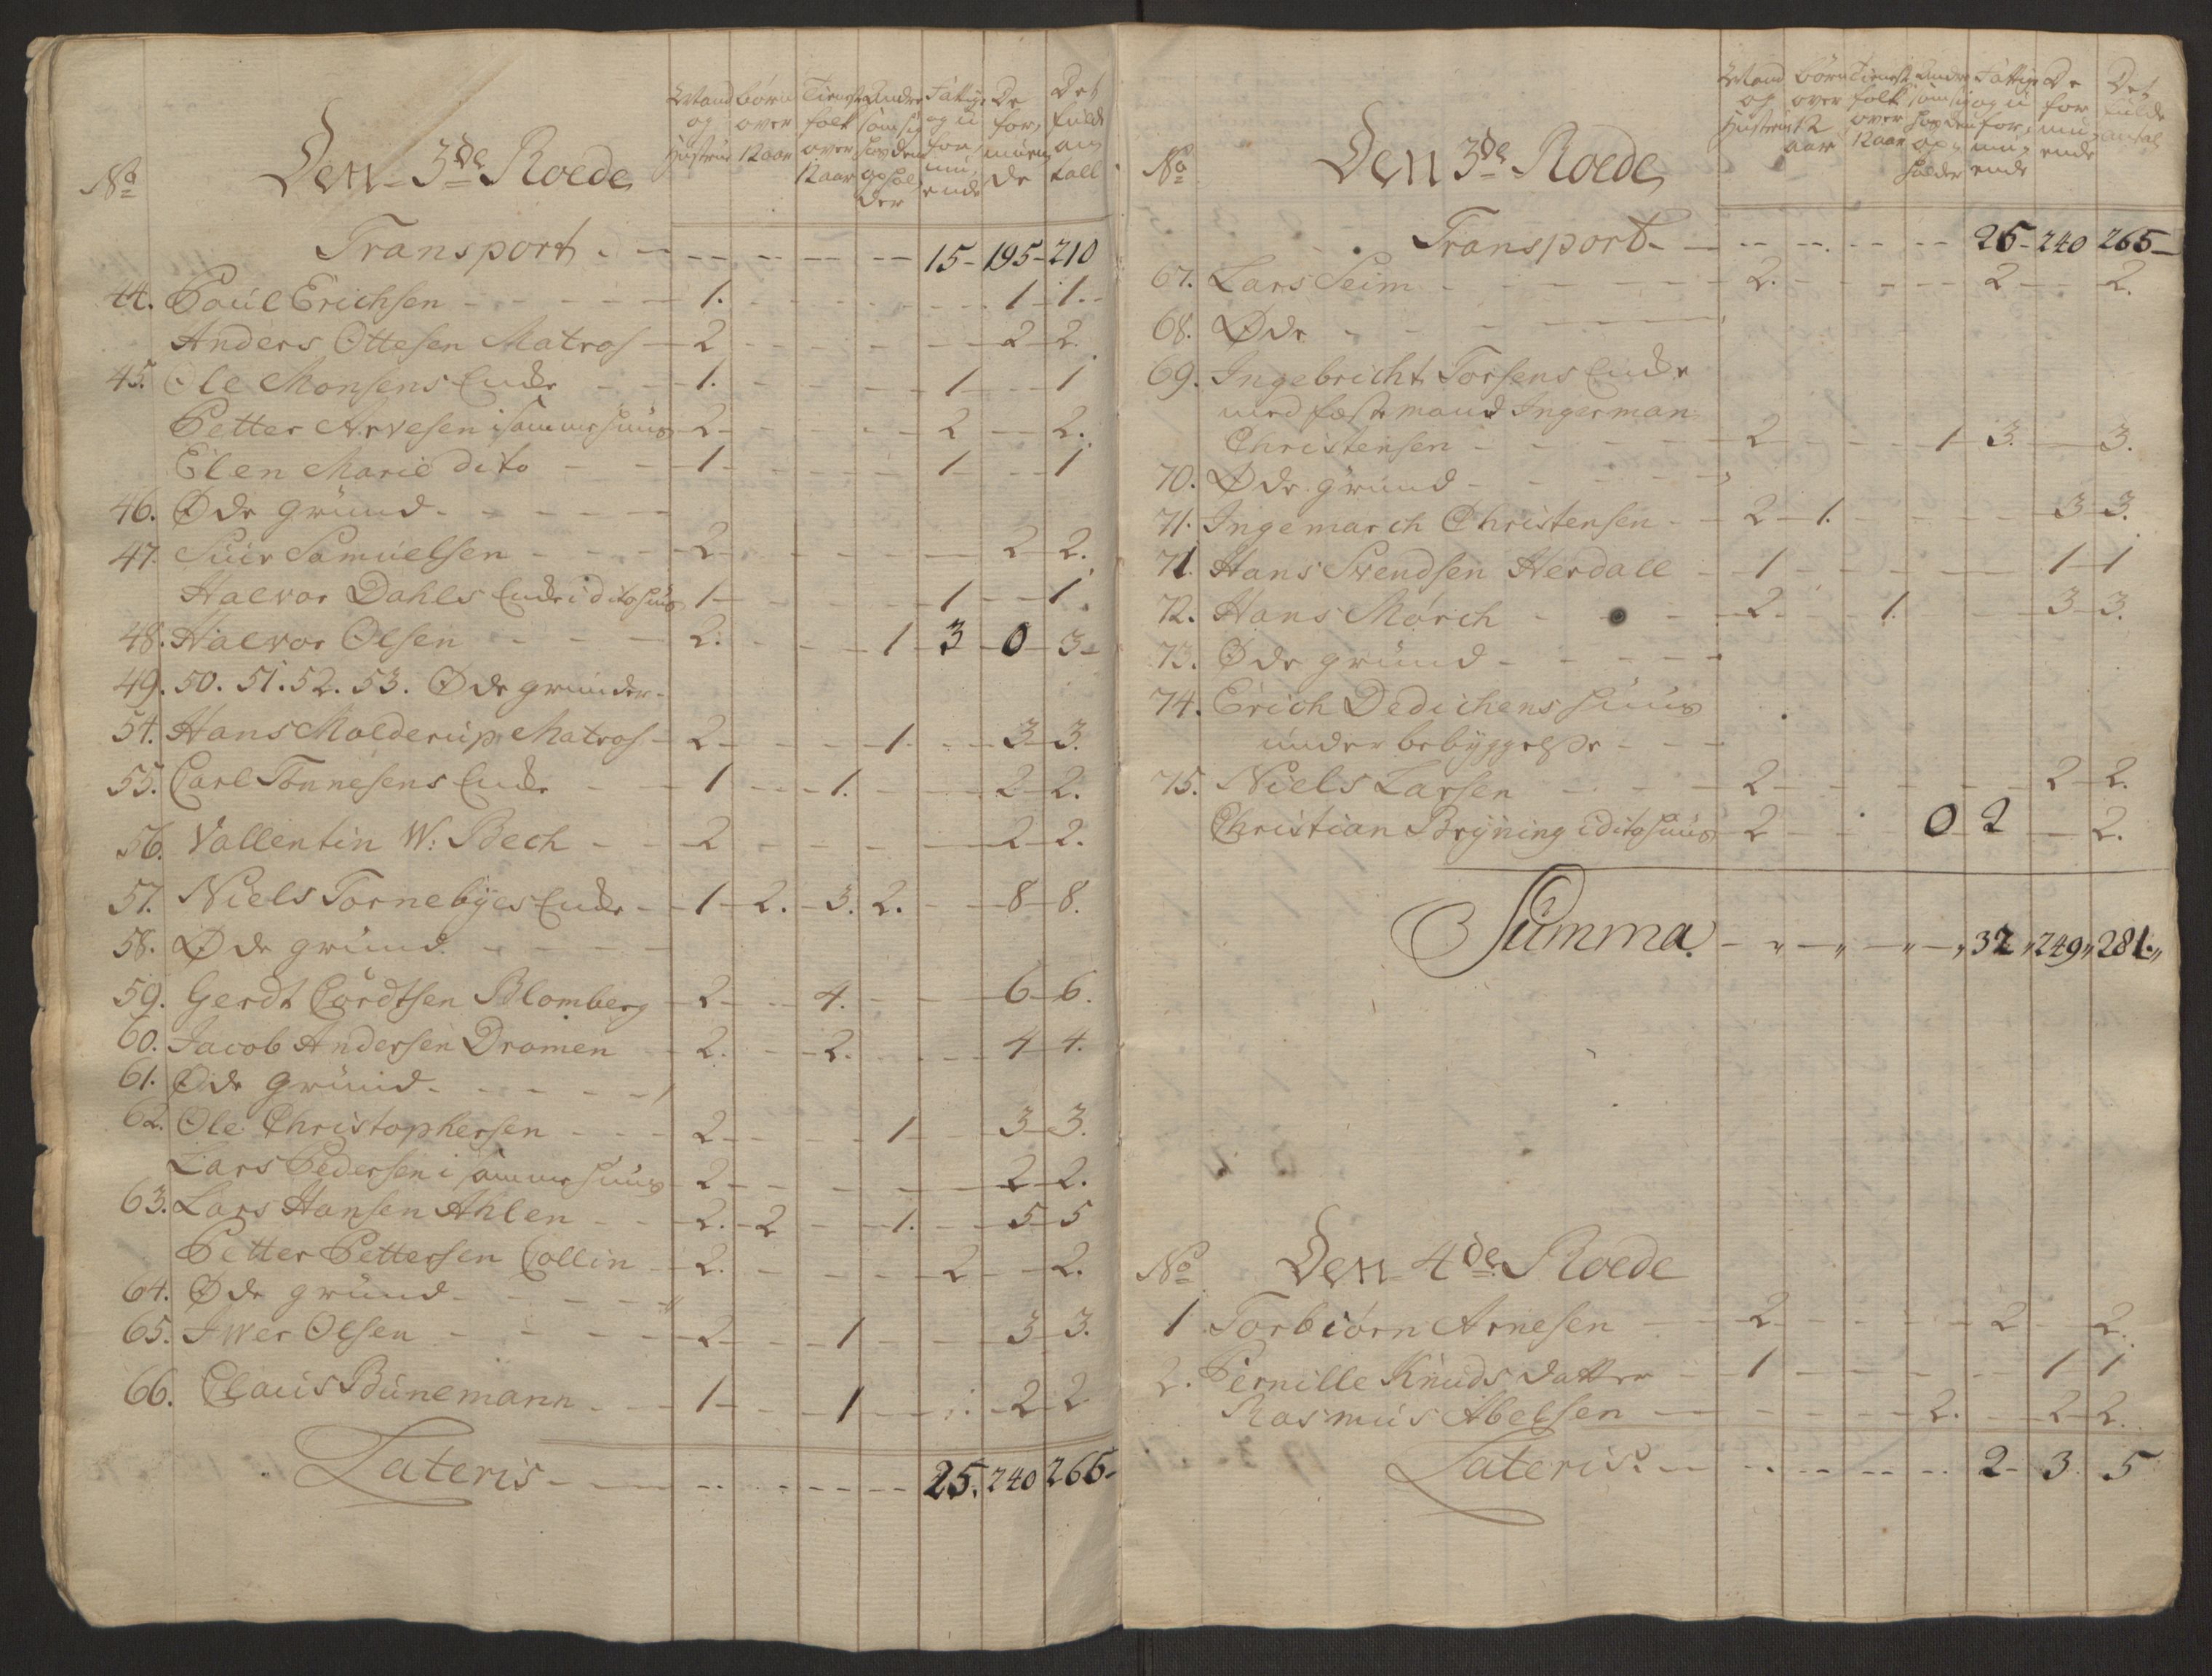 No
Den 3de Roede
Mand og Hustrue
børn over 12 aar
Tieneste folk over 12 aar
Andre som sig hos dem opholder
Fattige og uformuende
De formuende
Det fulde antall
Transport. - - - - - 15 - 195 - 210
44. Poul Erichsen - - 1. - - - 1 - 1. -
Anders Ottesen Matros - 2 - - - 2 - 2.
45. Ole Monsens Enche - - 1. - - - 1 - - 1
Petter Arvesen i samme huus - 2 - - - 2 - 2.
Elen Marie dito - - 1 - - - 1 - - 1
46. Øde grund. - - -
47. Siur Samuelsen - - - 2 - - - 2 2.
Halvor Dahls Enke i dito huus 1 - - - 1 - - 1.
48. Halvor Olsen - - - 2. - - 1 3 - 0 - 3 -
49. 50. 51. 52. 53. Øde grunder. -
54. Hans Molderup Matros - 2 - - - 1. - - 3 - 3.
55. Carl Tönnesens Enke - - 1 - - 1. - - 2 - 2.
56. Vallentin W: Bech - - 2 - - - 2 - 2.
57. Niels Tornebÿes Enke - - 1 - 2. - 3. 2. - - 8 - 8.
58. Øde grund. - - - -
59. Gerdt Cordtsen Blomberg - 2 - - 4. - - - 6 - 6.
60. Jacob Andersen Dromen - 2. - - 2. - - - 4 - 4.
61. Øde grund. - - - - -
62. Ole Christophersen - - - 2 - - - 1 - - 3 - 3.
Lars Pedersen i samme huus - 2 - - - - 2 - 2.
63. Lars Hansen Ahlen - - - 2. - 2 - - 1. - - 5 - 5
Petter Pettersen Collin - 2. - - - - 2 - - 2.
64. Øde grund. - - - - "
65. Iver Olsen - - - - 2 - - 1 - - - 3 - 3.
66. Claus Bünemann - - - 1 - - 1 - - 2 - 2
Lateris - - - - - - 25. 240 265 -
No
Den 3de Roede
Mand og Hustrue
børn over 12 aar
Tieneste folk over 12 aar
Andre som sig hos dem opholder
Fattige og uformuende
De formuende
Det fulde antal
Transport - - - - - 25 - 240 265 -
67. Lars Seim - - - - 2. - - - 2 - - 2.
68. Øde - - - -
69. Ingebricht Torsens Enke
med fæstemand Ingerman
Christensen - - - - 2 - - - 1 3. - 3.
70. Øde grund - - - - -
71. Ingemarch Christensen - - 2 - 1. - - - - 3 - 3.
71. Hans Svendsen Herdall - 1 - - - - 1 - 1
72. Hans Mörch - - - 2. - - 1. - - 3 - 3.
73. Øde grund - - - - -
74. Erich Dedichens huus
under bebyggelse - - -
75. Niels Larsen - - - - 2 - - - - 2 - 2.
Christian Bryning i dito huus - 2 - - 0 2 - 2.
Summa - " - " - " - " 32 " 249 " 281. "
No
Den 4de Roede
1 Torbiörn Arnesen - - 2 - - - - 2 - - 2.
2. Pernille Knuds datter - 1 - - - - 1 1
Rasmus Abelsen - - - - - 2. - - 2 - 2.
Lateris. - - - - - 2 - 3. 5